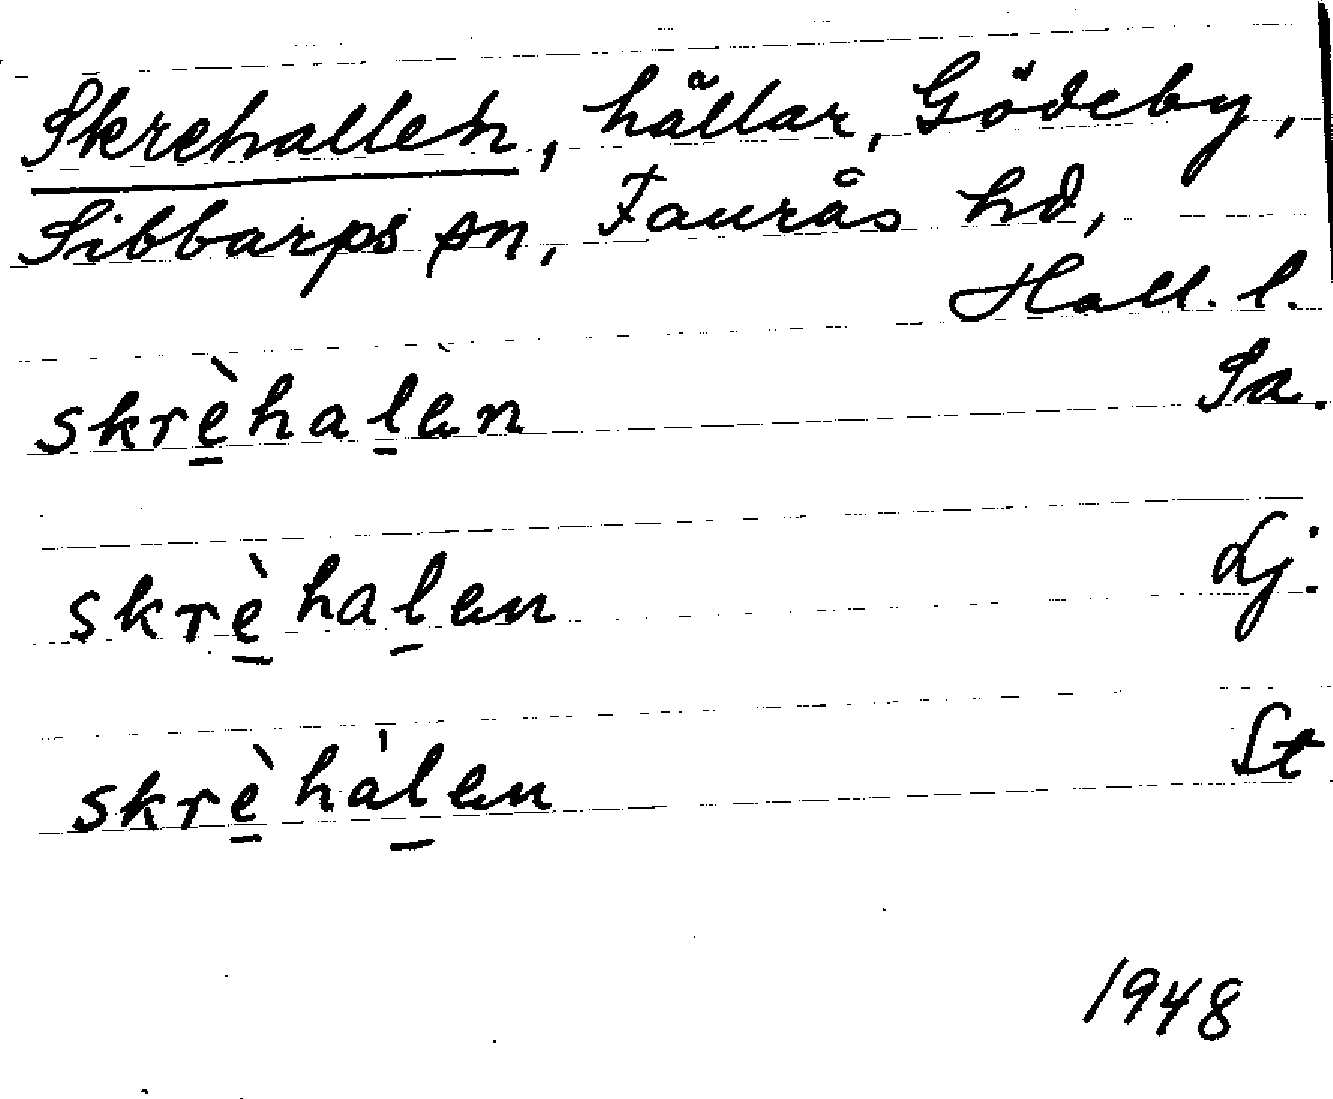 Skrehallen, hällar, Gödeby,
Sibbarps sn, Faurås hd,
Hall. l.
skrèhalèn Sa.
skrèhalen Lj.
skrèhàlen St
1948